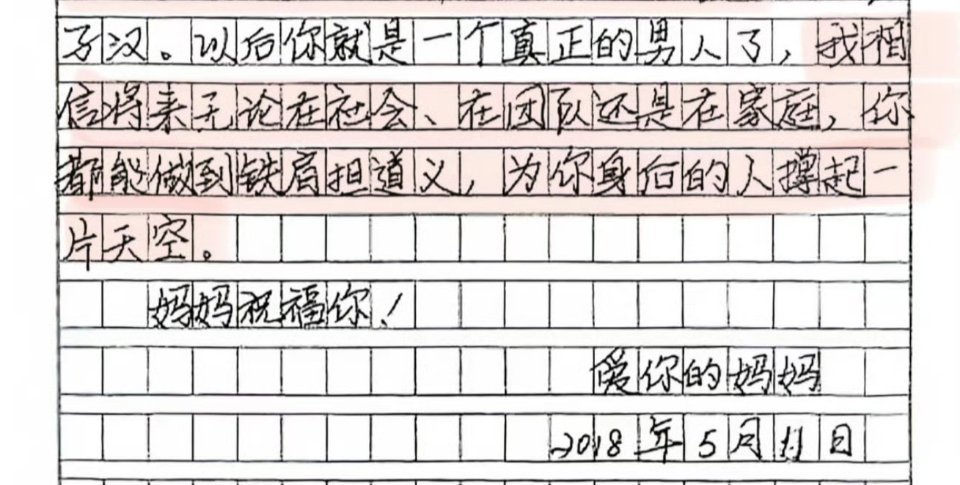 子汉。以后你就是一个真正的男人了，我相
信将来无论在社会、在团队还是在家庭，你
都能做到铁肩担道义，为你身后的人撑起一
片天空。
妈妈祝福你！
爱你的妈妈
2018年5月11日